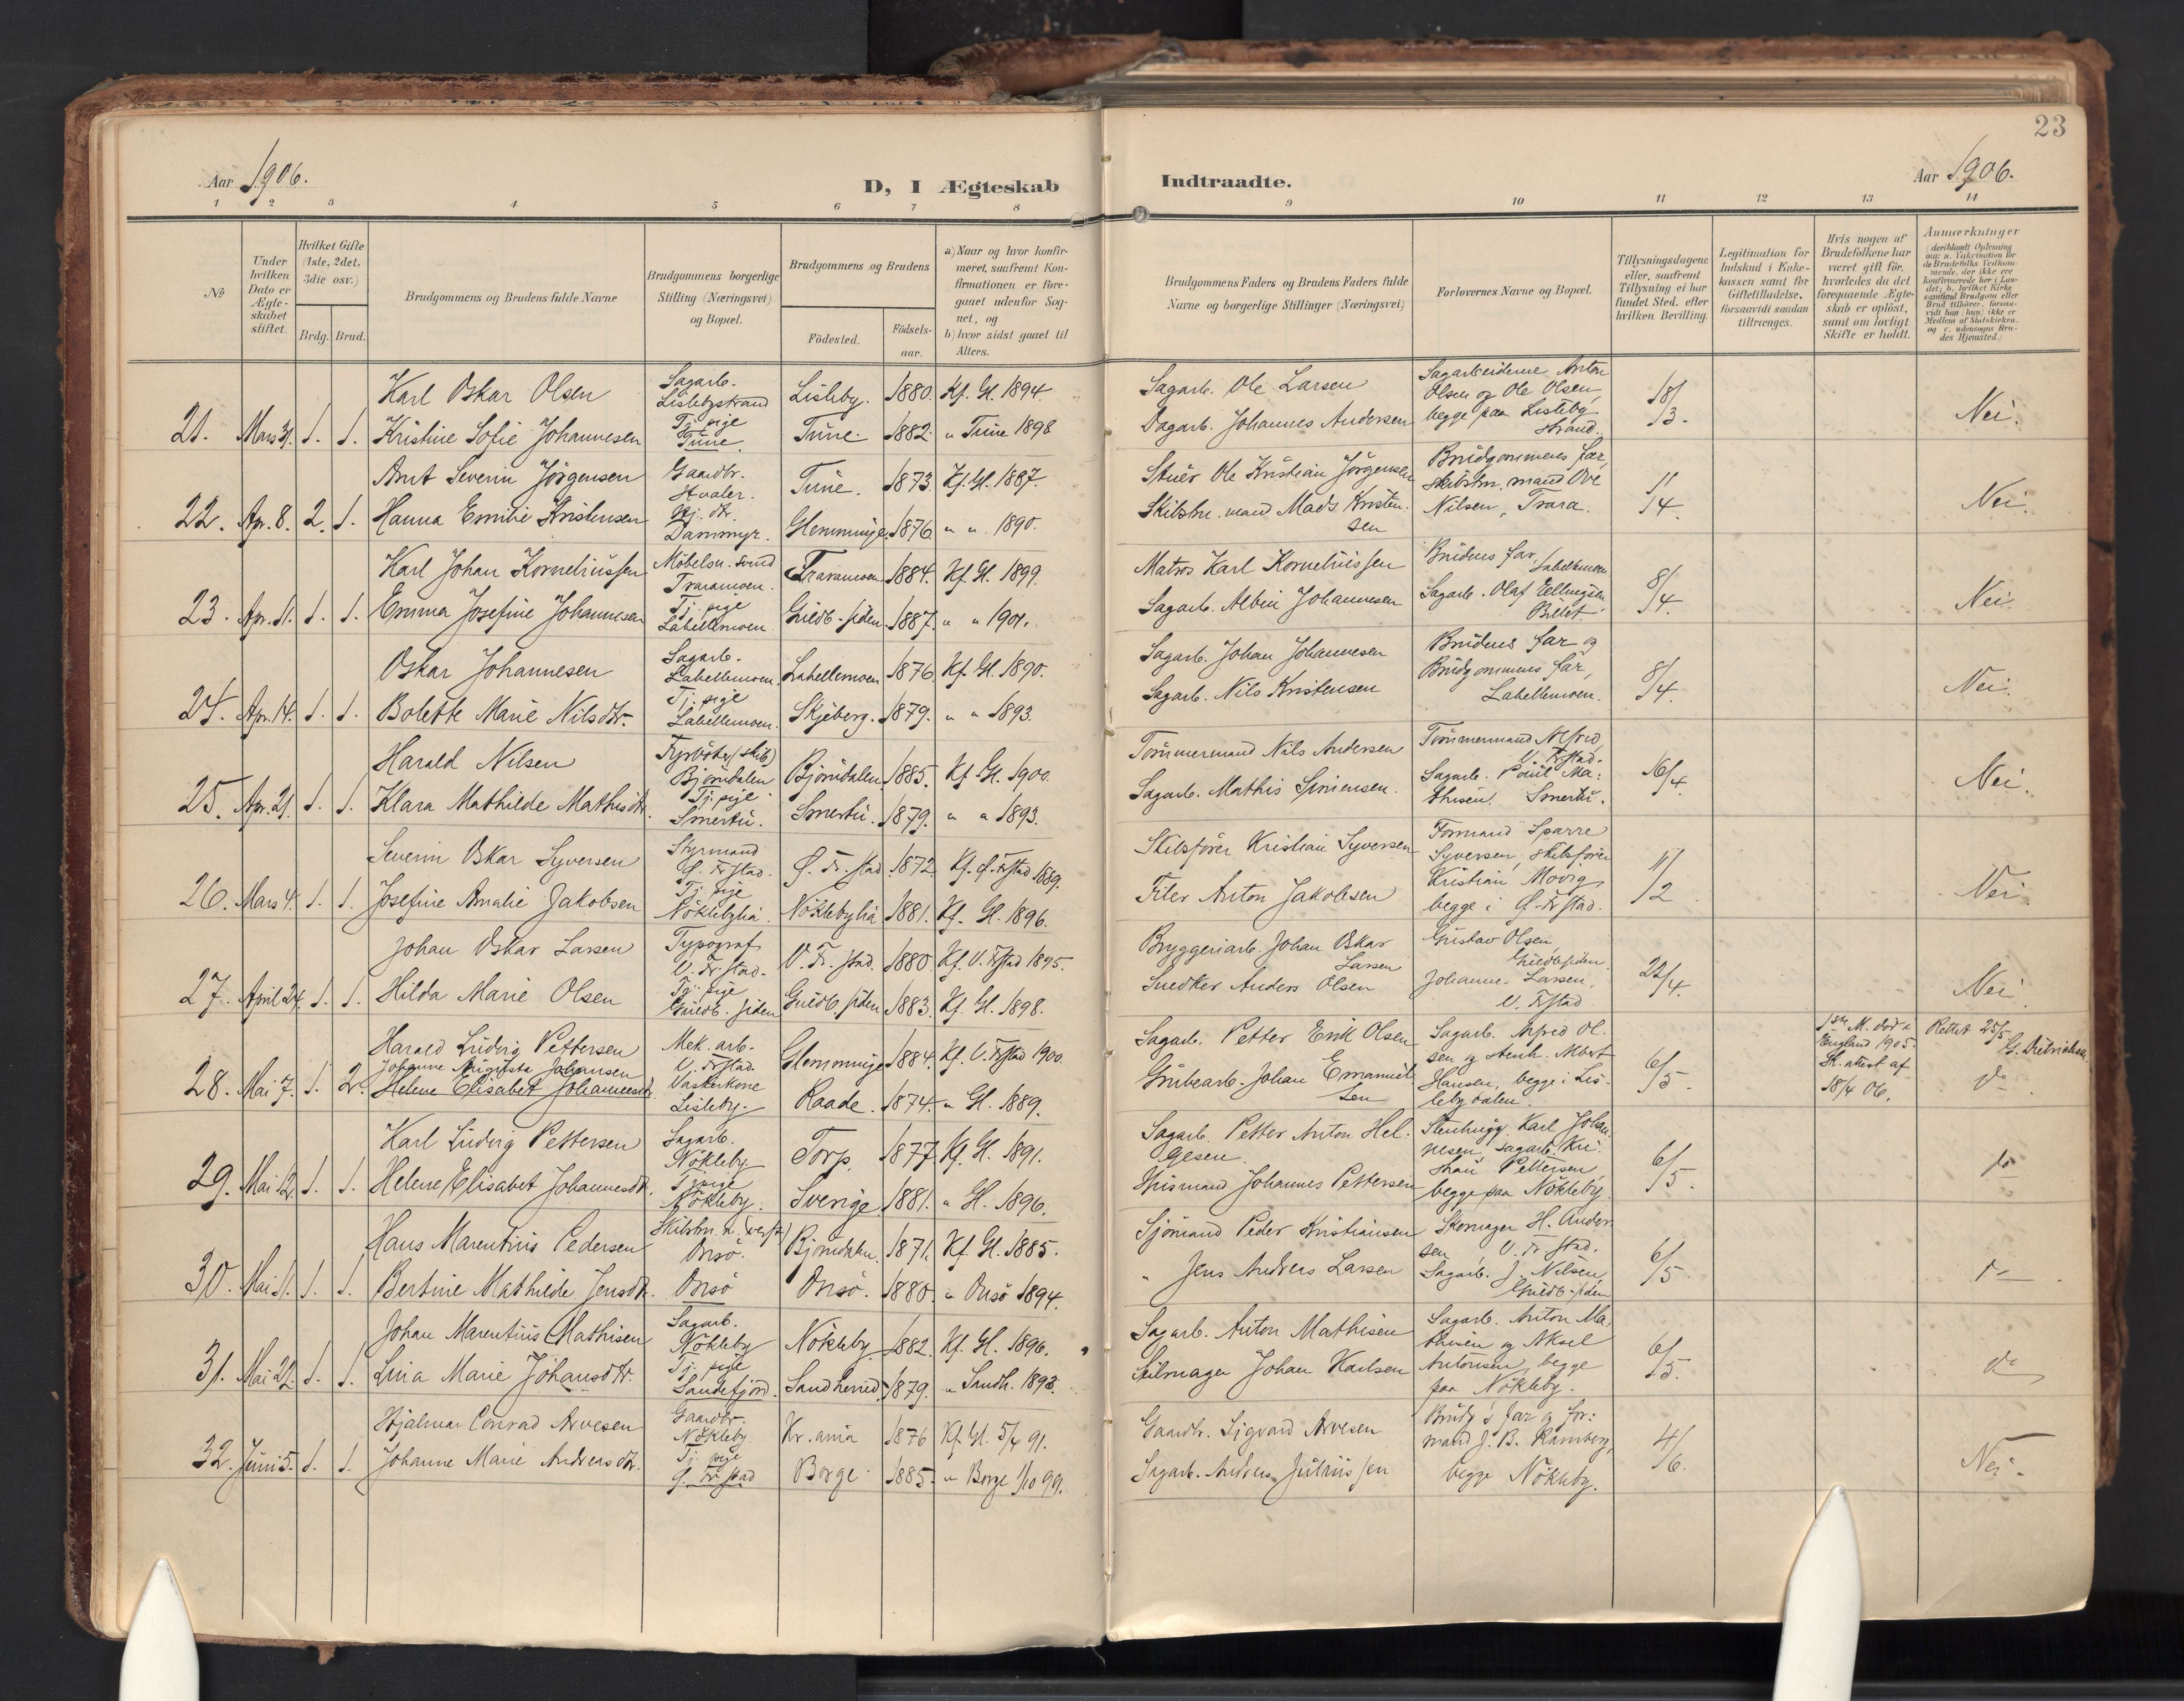 23
Aar 1906.
D, I Ægteskab
Indtraadte.
Aar 1906.
1 2 3 4 5 6 7 8 9 10 11 12 13 14
No
Under hvilken Dato er Ægteskabet stiftet.
Hvilket Gifte (1ste, 2det, 3die osv.)
Brdg. Brud.
Brudgommens og Brudens fulde Navne
Brudgommens borgerlige Stilling (Næringsvei) og Bopæl.
Brudgommens og Brudens
Födested.
Födselsaar.
a) Naar og hvor konfirmeret, saafremt Konfirmationen er foregaaet udenfor Sognet, og
b) hvor sidst gaaet til Alters.
Brudgommens Faders og Brudens Faders fulde Navne og borgerlige Stillinger (Næringsvei)
Forlovernes Navne og Bopæl.
Tillysningsdagene eller, saafremt Tillysning ei har fundet Sted, efter hvilken Bevilling.
Legitimation for Indskud i Enkekassen samt for Giftetilladelse, forsaavidt saadan tiltrænges.
Hvis nogen af Brudefolkene har været gift før, hvorledes da det foregaaende Ægteskab er opløst, samt om lovligt Skifte er holdt.
Anmærkninger
Karl Oskar Olsen Sagarb. Lislebystrand Lisleby. 1880. Kf. Gl. 1894. Sagarb. Ole Larsen Sagarbeiderne Anton Olsen og Ole Olsen, begge paa Lislebystrand. 18/3. Nei.
21. Mars 31. 1. 1. Kristine Sofie Johannesen Tj. pige Tune. Tune. 1882. " Tune 1898 Dagarb. Johannes Andersen
Arnt Severin Jörgensen Gaardbr. Hvaler. Tune. 1873. Kf. Gl. 1887. Stuër Ole Kristian Jörgensen Brudgommens far, skibstm. mand Ove Nilsen, Trara. 1/4. Nei.
22. Apr. 8. 2. 1. Hanna Emilie Kristensen Dammyr. Glemminge. 1876. " " 1890. Skibstm. mand Mads Kristensen
Karl Johan Korneliussen Möbelsn. svend Traramoen. Traramoen 1884. Kf. Gl. 1899. Matros Karl Korneliussen Brudens far, Labellemoen 8/4. Nei.
23. Apr. 11. 1. 1. Emma Josefine Johannesen Tj. pige Labellmoen Gudb. siden. 1887. " " 1901. Sagarb. Albin Johannesen Sagarb. Olaf Ellingsen
Oskar Johannesen Sagarb. Labellemoen. Labellemoen 1876. Kf. Gl. 1890. Sagarb. Johan Johannesen Brudens far og Brudgommens far, Labellemoen. 8/4. Nei.
24. Apr. 14. 1. 1. Bolette Marie Nilsdtr. Tj. pige Labellemoen. Skjeberg. 1879. " " 1893. Sagarb. Nils Kristensen
Harald Nilsen Fyrböter (skib) Björndalen Björndalen 1885. Kf. Gl. 1900. Tömmermand Nils Andersen Tömmermand Alfred, V. Frstad. 16/4. Nei.
25. Apr. 21. 1. 1. Klara Mathilde Mathisdtr. Tj. pige Smertu. Smertu. 1879. " " 1893. Sagarb. Mathis Simensen. Sagarb. Paul Mathisen. Smertu.
Severin Oskar Syversen Styrmand Ø. Frstad. Ø. Fr. stad. 1872 Kf. Ø. Frstad 1889. Skibsförer Kristian Syversen Formand Sparre Syversen, skibsförer Kristian Movig, begge i Ø. Frstad. 11/2. Nei.
26. Mars 4. 1. 1. Josefine Amalie Jakobsen Tj. pige Nöklebylia. Nöklebylia 1881. Kf. Gl. 1896. Filer Anton Jakobsen
Johan Oskar Larsen Typograf V. Fr. stad. V. Fr. stad. 1880. Kf. V. Frstad 1895. Bryggeriarb. Johan Oskar Larsen Gustav Olsen, Gudbsiden. 22/4. Nei.
27. April 24. 1. 1. Hilda Marie Olsen Tj. pige Gudb. siden Gudb. siden 1883. Kf. Gl. 1898. Snedker Anders Olsen Johannes Larsen, V. Frstad
Harald Ludvig Pettersen Mek. arb. V. Frstad. Glemminge 1884. Kf. V. Frstad 1900. Sagarb. Petter Erik Olsen Sagarb. Alfred Olsen og stenh. Albert Hansen, begge i Lislebydalen. 6/5. 1ste M. död i England 1905. Sk. attest af 18/4 06. Rettet 25/5 G. Dietrichson
Johanne Augusta Johansen
28. Mai 7. 1. 2. Helene Elisabet Johannesdtr. Vaskerkone Lisleby. Raade. 1874. " Gl. 1889. Grubearb. Johan Emanuelsen do
Karl Ludvig Pettersen Sagarb. Nökleby Torp. 1877. Kf. Gl. 1891. Sagarb. Petter Anton Helgesen. Stenhugg. Karl Johannesen, sagarb. Kristian Pettersen, begge paa Nökleby. 6/5. do
29. Mai 12. 1. 1. Helene Elisabet Johannesdtr. Tj. pige Nökleby. Sverige. 1881. " Gl. 1896. Johannes Pettersen
Hans Marentius Pedersen Onsö. Björndalen. 1871. Kf. Gl. 1885. Sjömand Peder Kristiansen Skomager H. Andersen, V. Fr. stad. 6/5. do
30. Mai 11. 1. 1. Bertine Mathilde Jensdtr. Onsö Onsö. 1880. " Onsö 1894. " Jens Andreas Larsen Sagarb. J. Nilsen, Gudb. siden
Johan Marentius Mathisen Sagarb. Nökleby Nökleby 1882. Kf. Gl. 1896. Sagarb. Anton Mathisen Sagarb. Anton Mathisen og Aksel Antonsen, begge paa Nökleby. 6/5. do
31. Mai 22. 1. 1. Lina Marie Johansdtr. Tj. pige Sandefjord. Sandherred. 1879. " Sandh. 1893. Seilmager Johan Karlsen
Hjalmar Conrad Arvesen Gaardbr. Nökleby. Kr.ania 1876 Kf. Gl. 5/4 91. Gaardbr. Sigvard Arvesen Brudg's far og formand J. B. Ramberg, begge Nökleby. 4/6. Nei.
32. Juni 5. 1. 1. Johanne Marie Andreasdtr. Tj. pige Ø. Fr. stad Borge 1885. " Borge 1/10 99. Sagarb. Andreas Juliussen